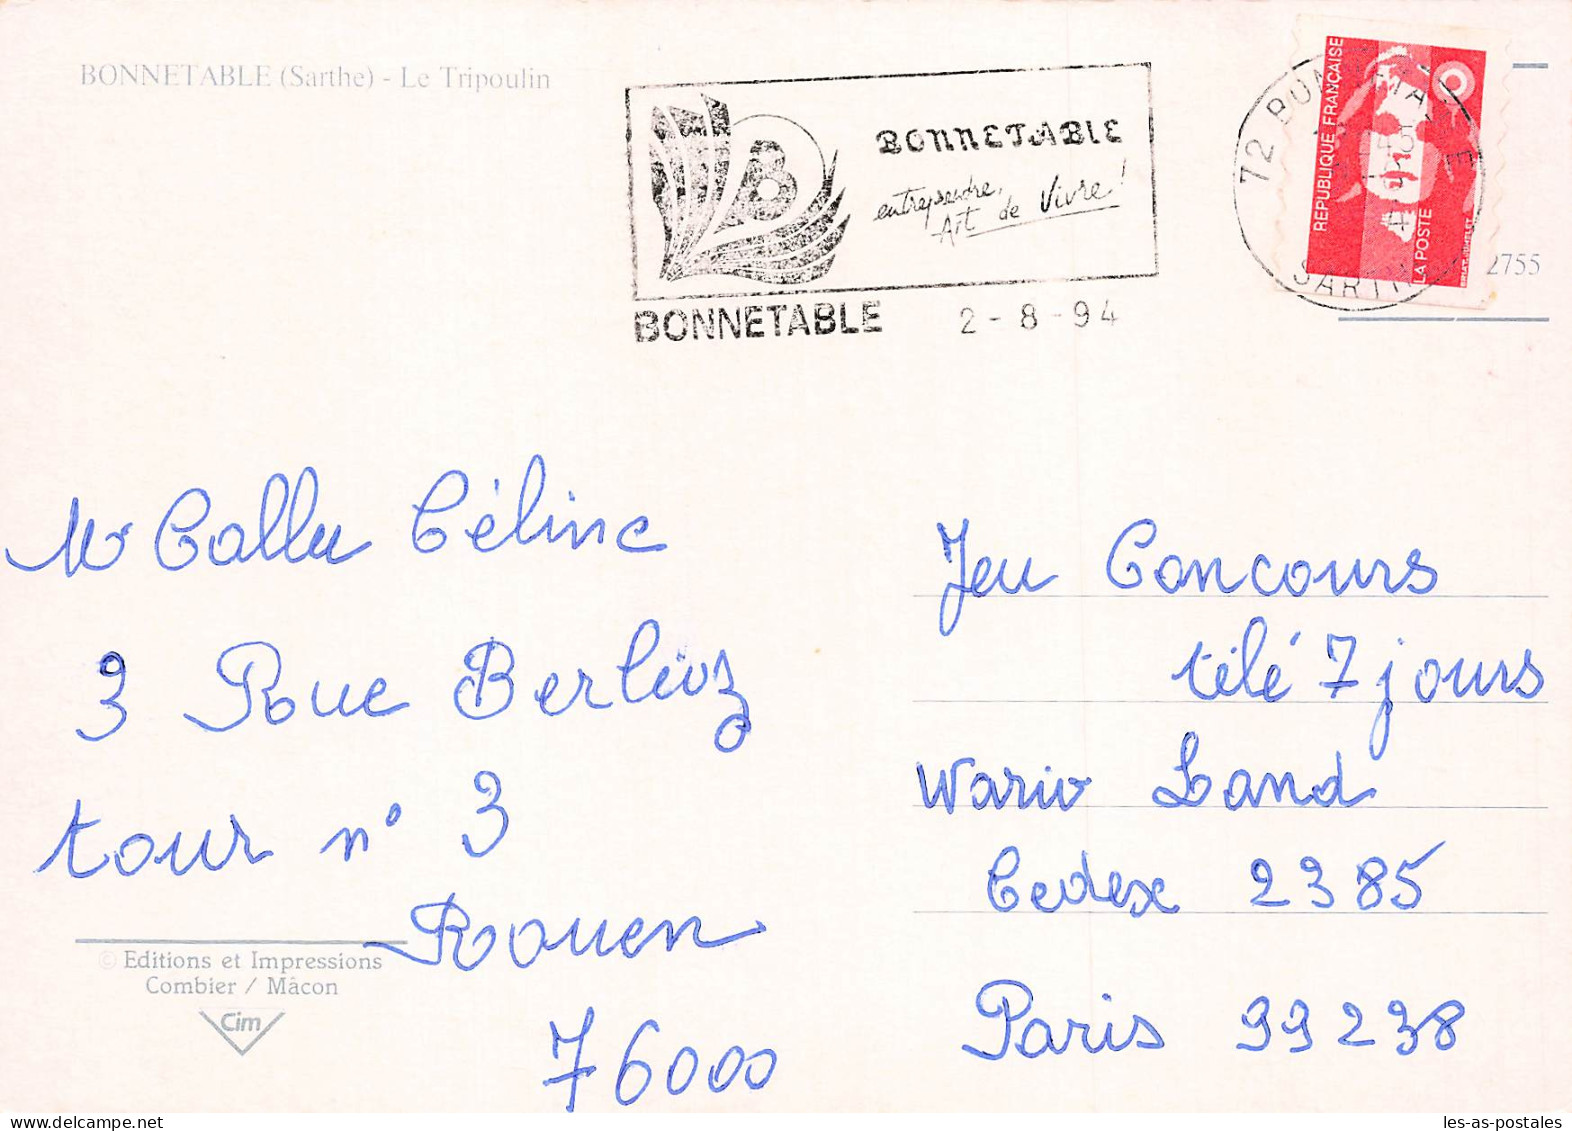 BONNETABLE (Sarthe) - Le Tripoulin
BONNETABLE
entreprendre,
Art de Vivre!
BONNETABLE 2 - 8 - 94
72
SARTHE
REPUBLIQUE FRANÇAISE
LA POSTE
2755
Callu Céline
3 Rue Berlioz
tour n° 3
Rouen
76000
Jeu Concours
télé 7 jours
Wario Land
Cedex 2385
Paris 99238
© Editions et Impressions
Combier / Mâcon
Cim
les-as-postales